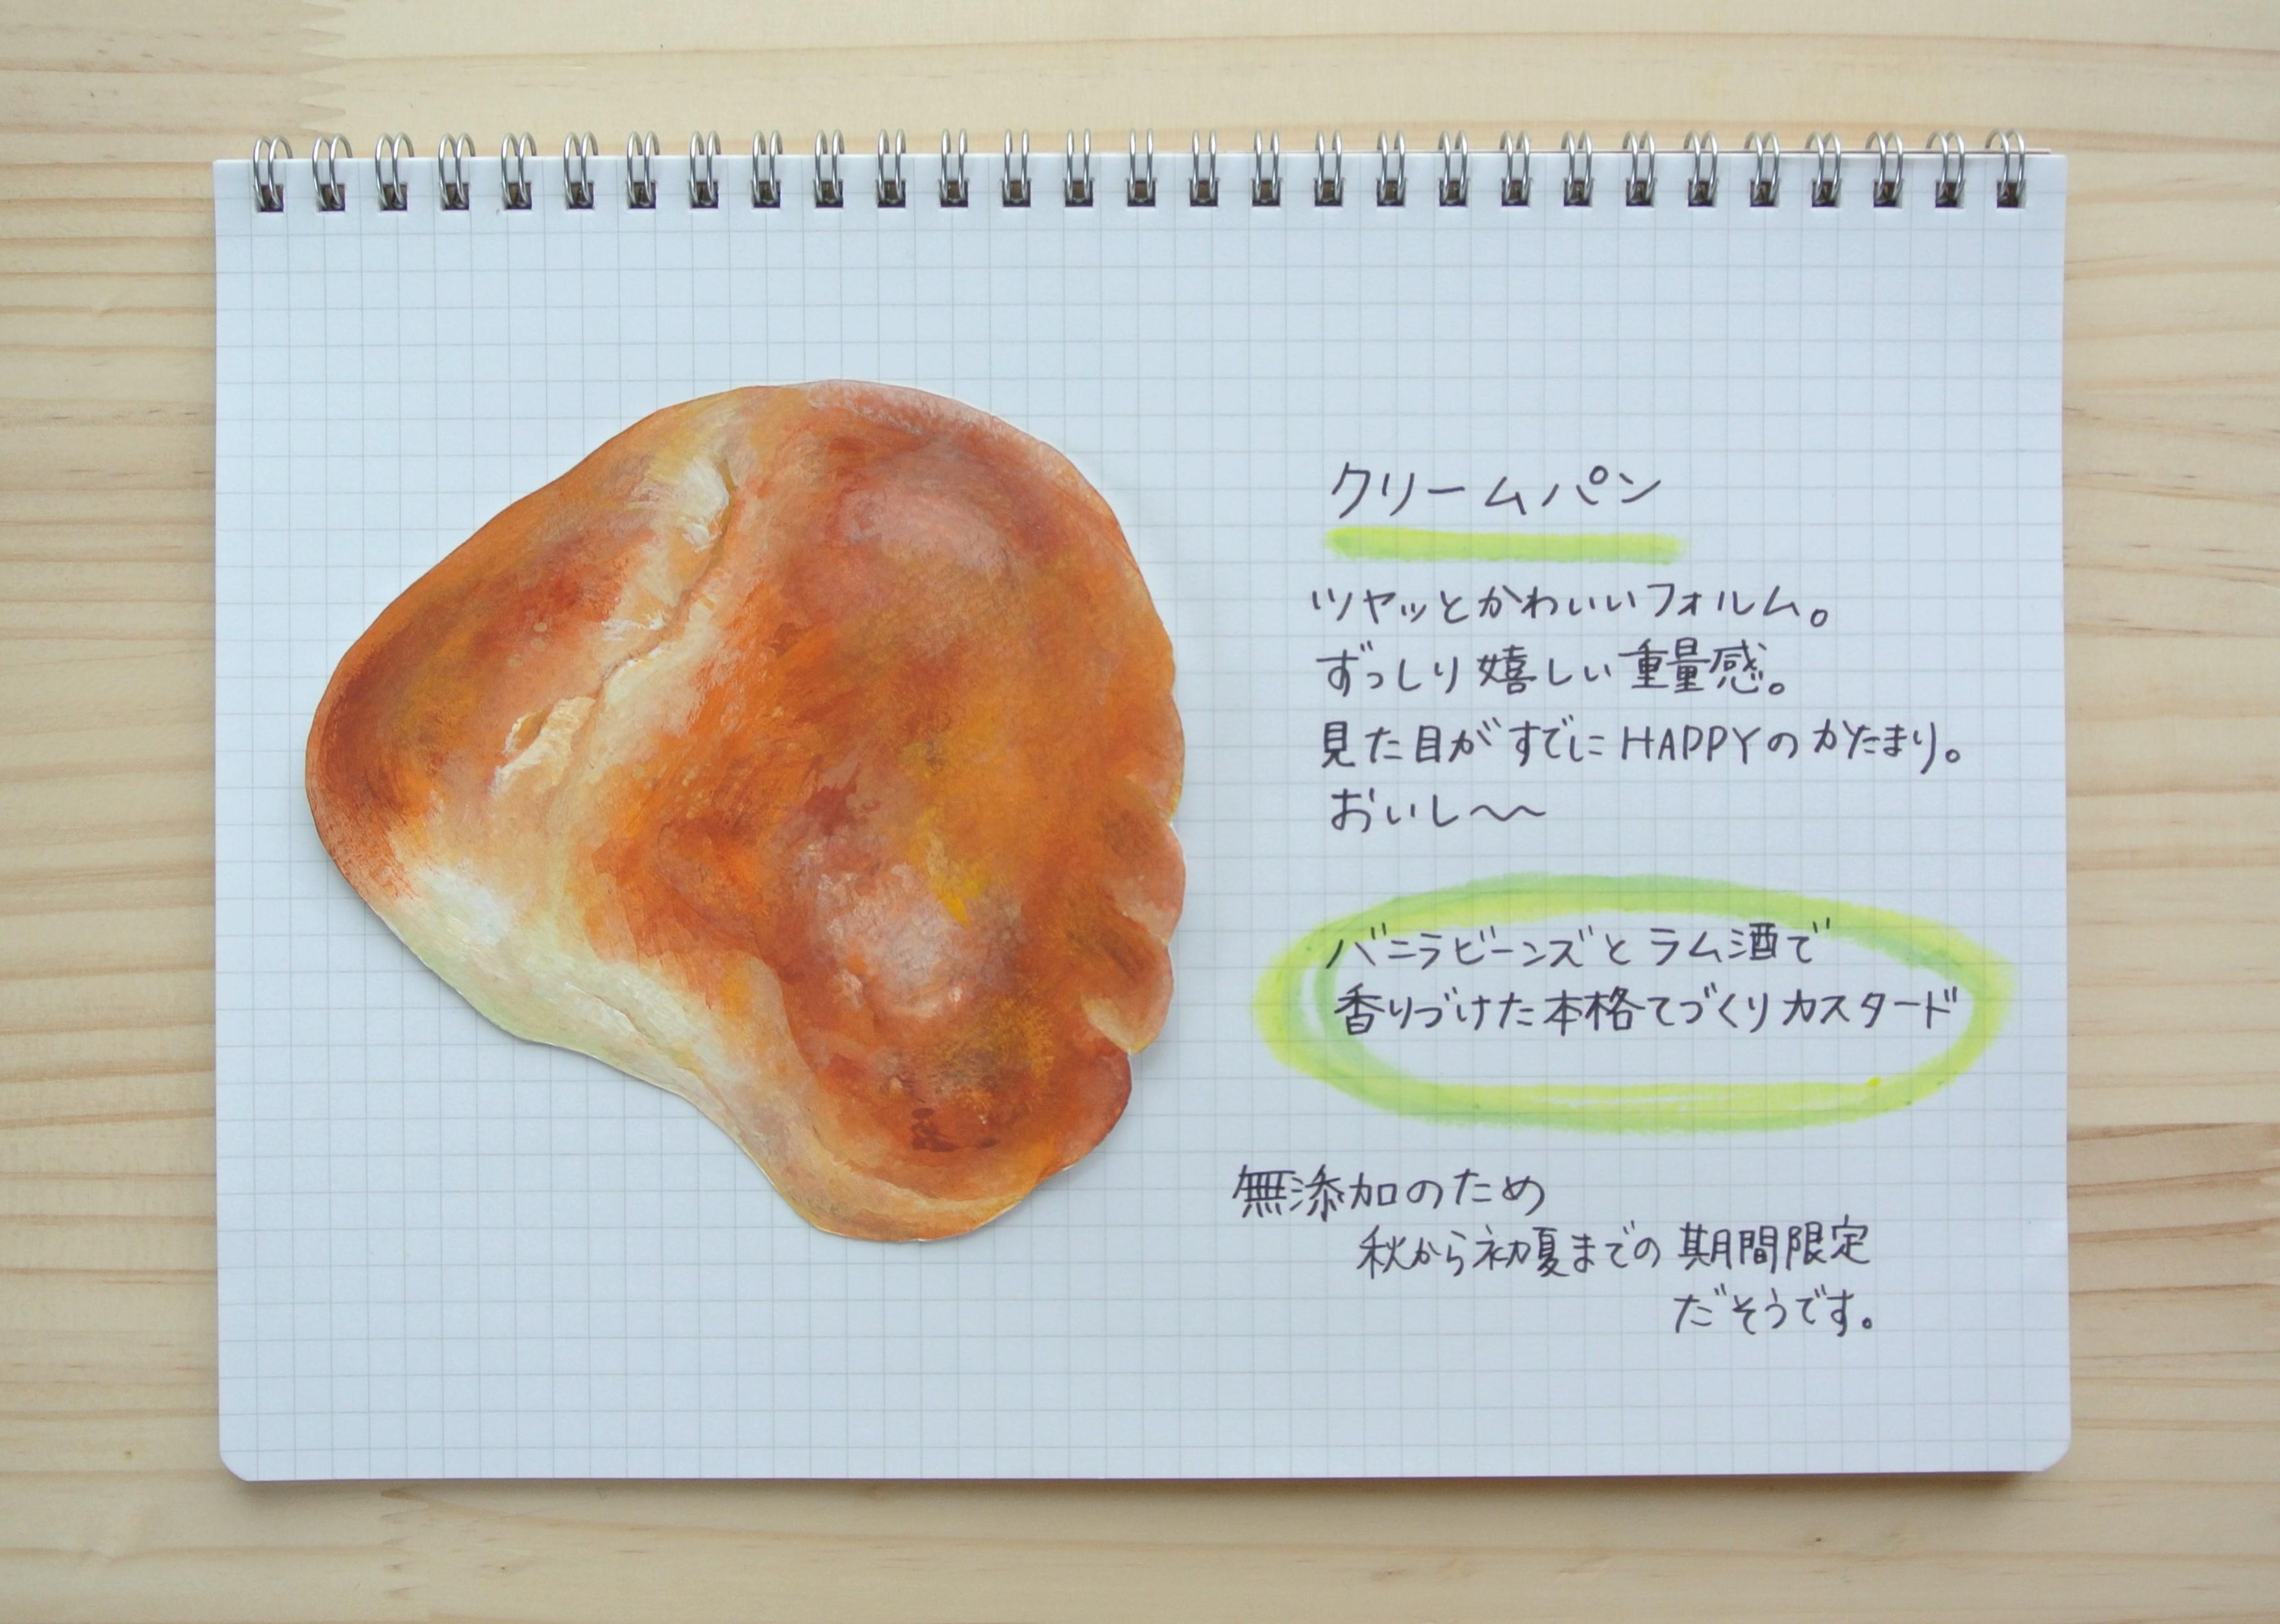 クリームパン
ツヤッとかわいいフォルム。
ずっしり嬉しい重量感。
見た目がすでにHAPPYのかたまり。
おいし〜〜
バニラビーンズとラム酒で
香りづけた本格てづくりカスタード
無添加のため
秋から初夏までの期間限定
だそうです。